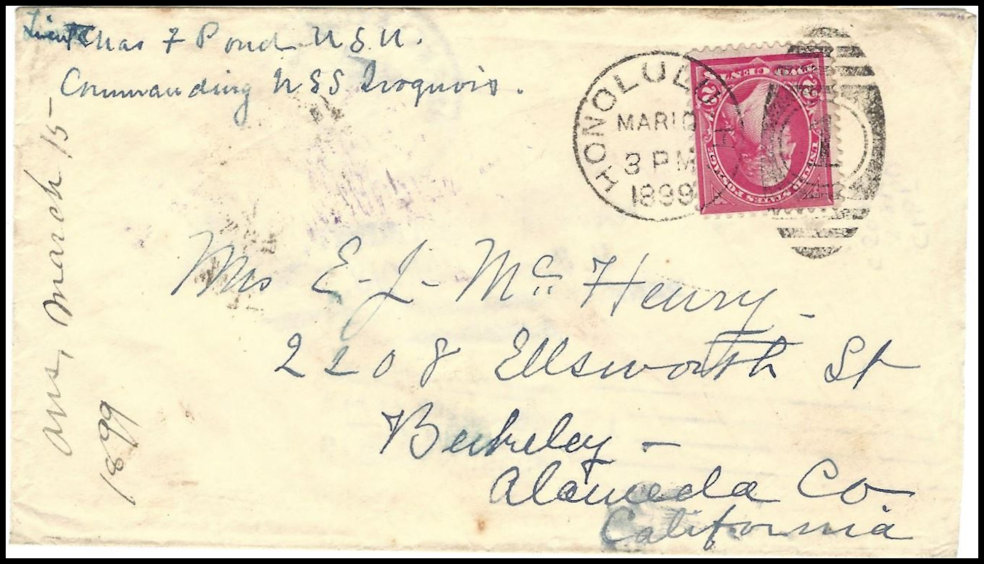 Lieut Chas F Pond U.S.N.
Commanding USS Iroquois.
HONOLULU
MAR
3 PM
1899
Mrs E-J-McHenry
2208 Ellsworth St
Berkeley -
Alameda Co
California
ans, March 15-
1899